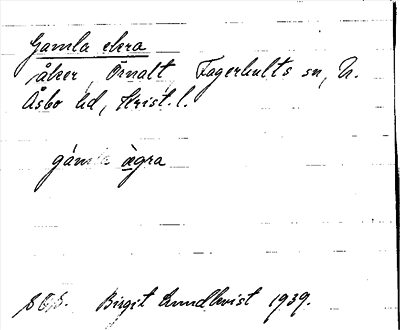 Gamla ekra
åker, Örnalt, Fagerhults sn, N.
Åsbo hd, Krist. l.
gámla àgra
Birgit Lundkvist 1939.